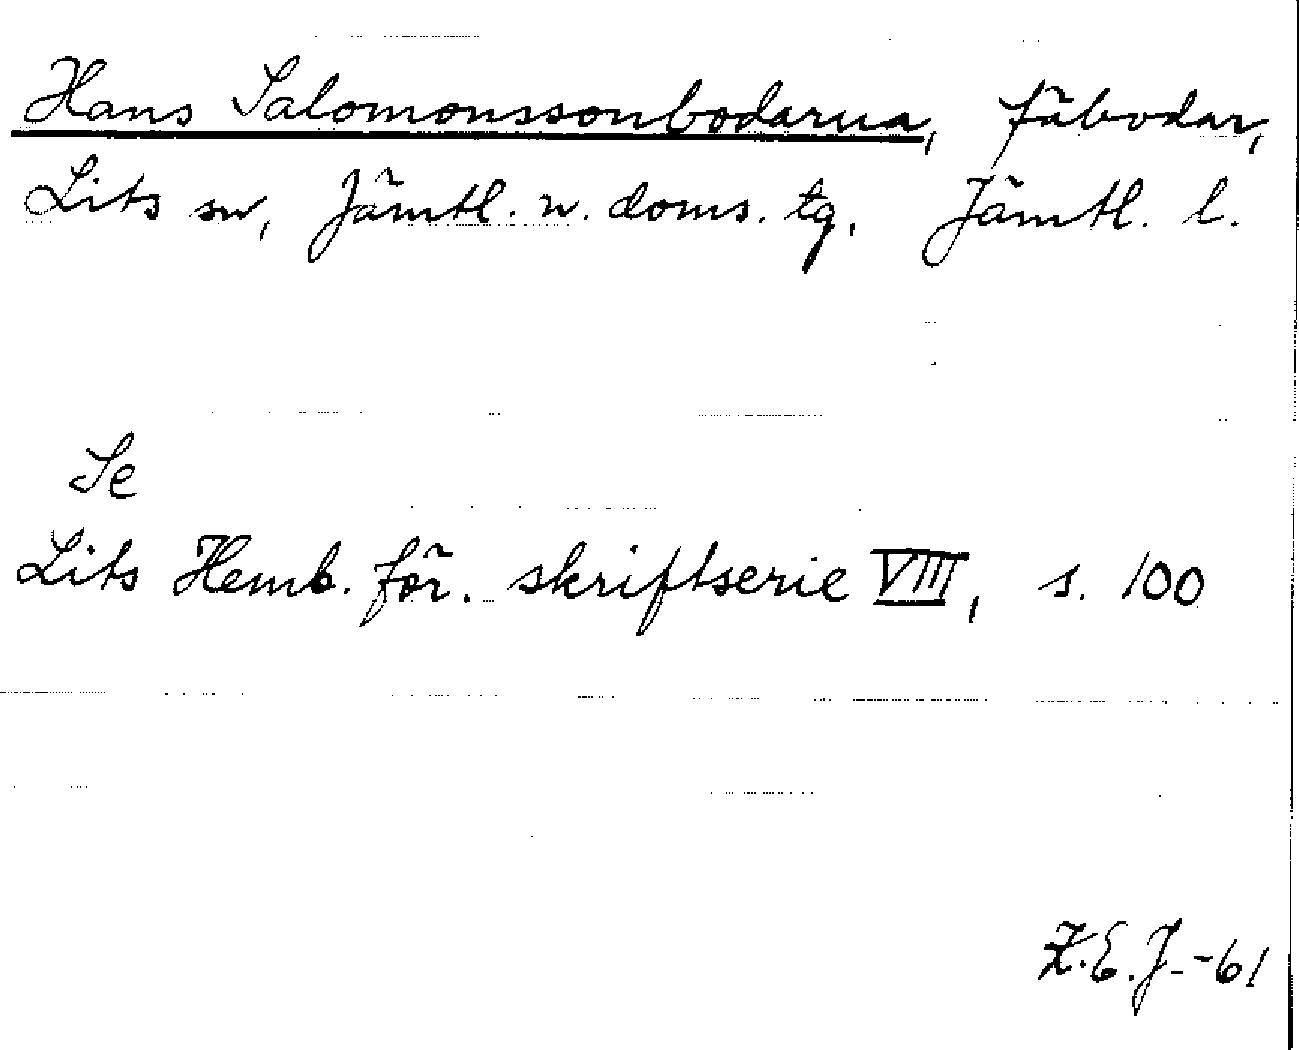 Hans Salomonssonbodarna, fäbodar,
Lits sn, Jämtl. n. doms. tg, Jämtl. l.
Se
Lits Hemb. för. skriftserie VIII, s. 100
Z.E.J. -61